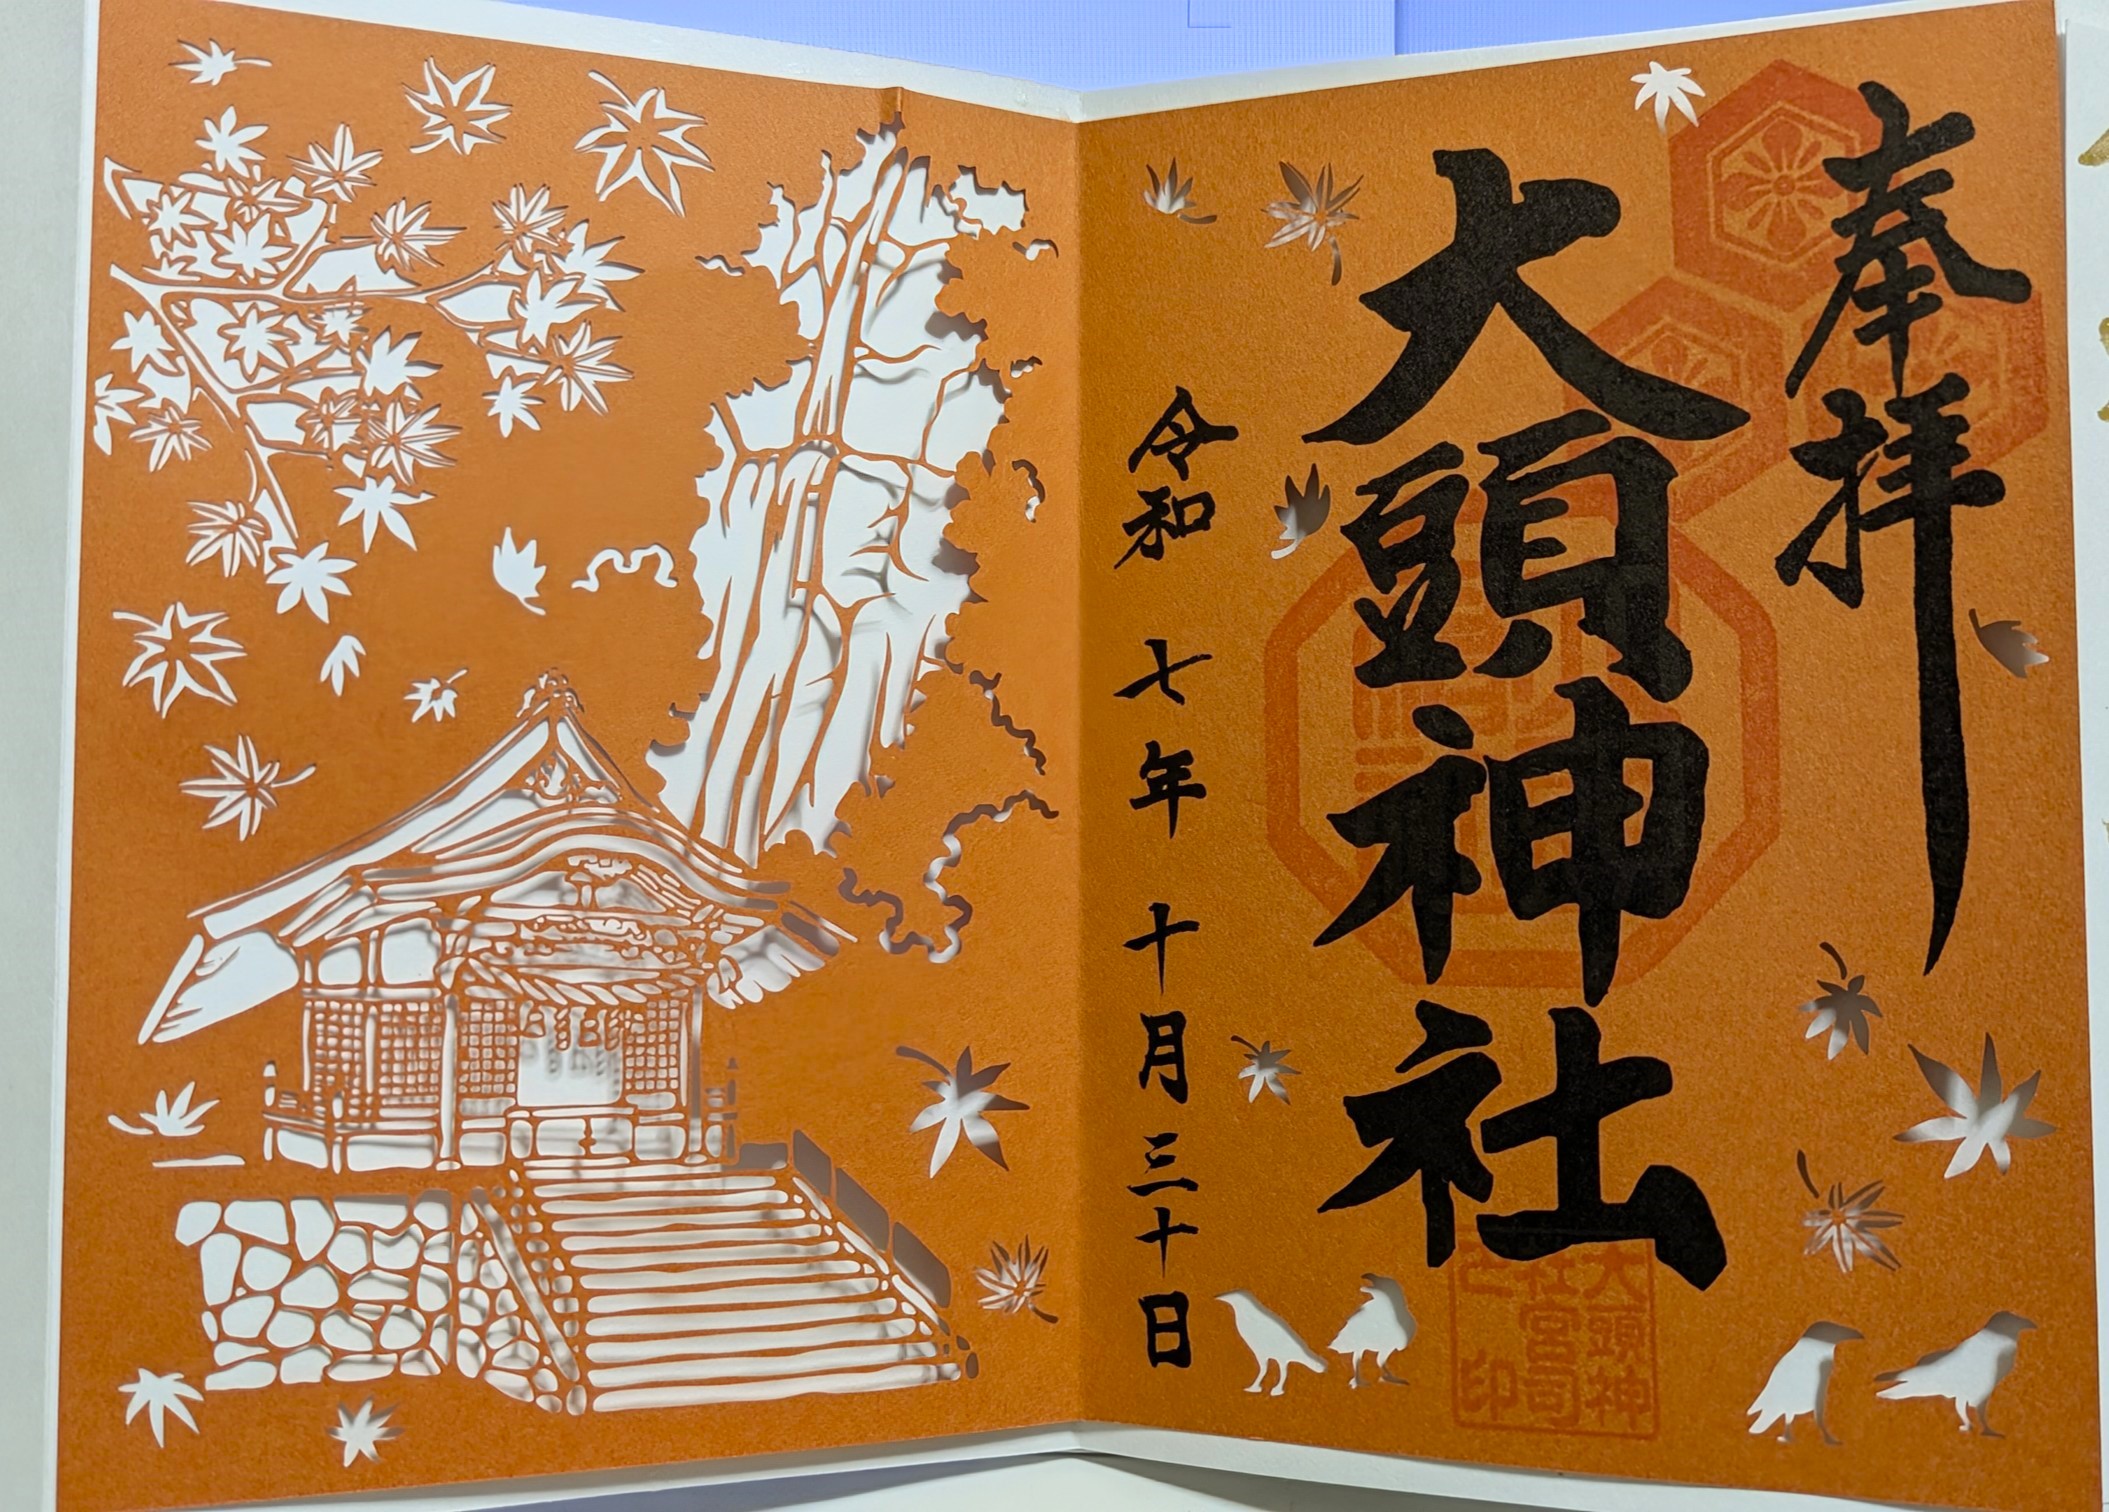 奉拝
大頭神社
令和七年十月三十日
大頭神
社宮司
之印